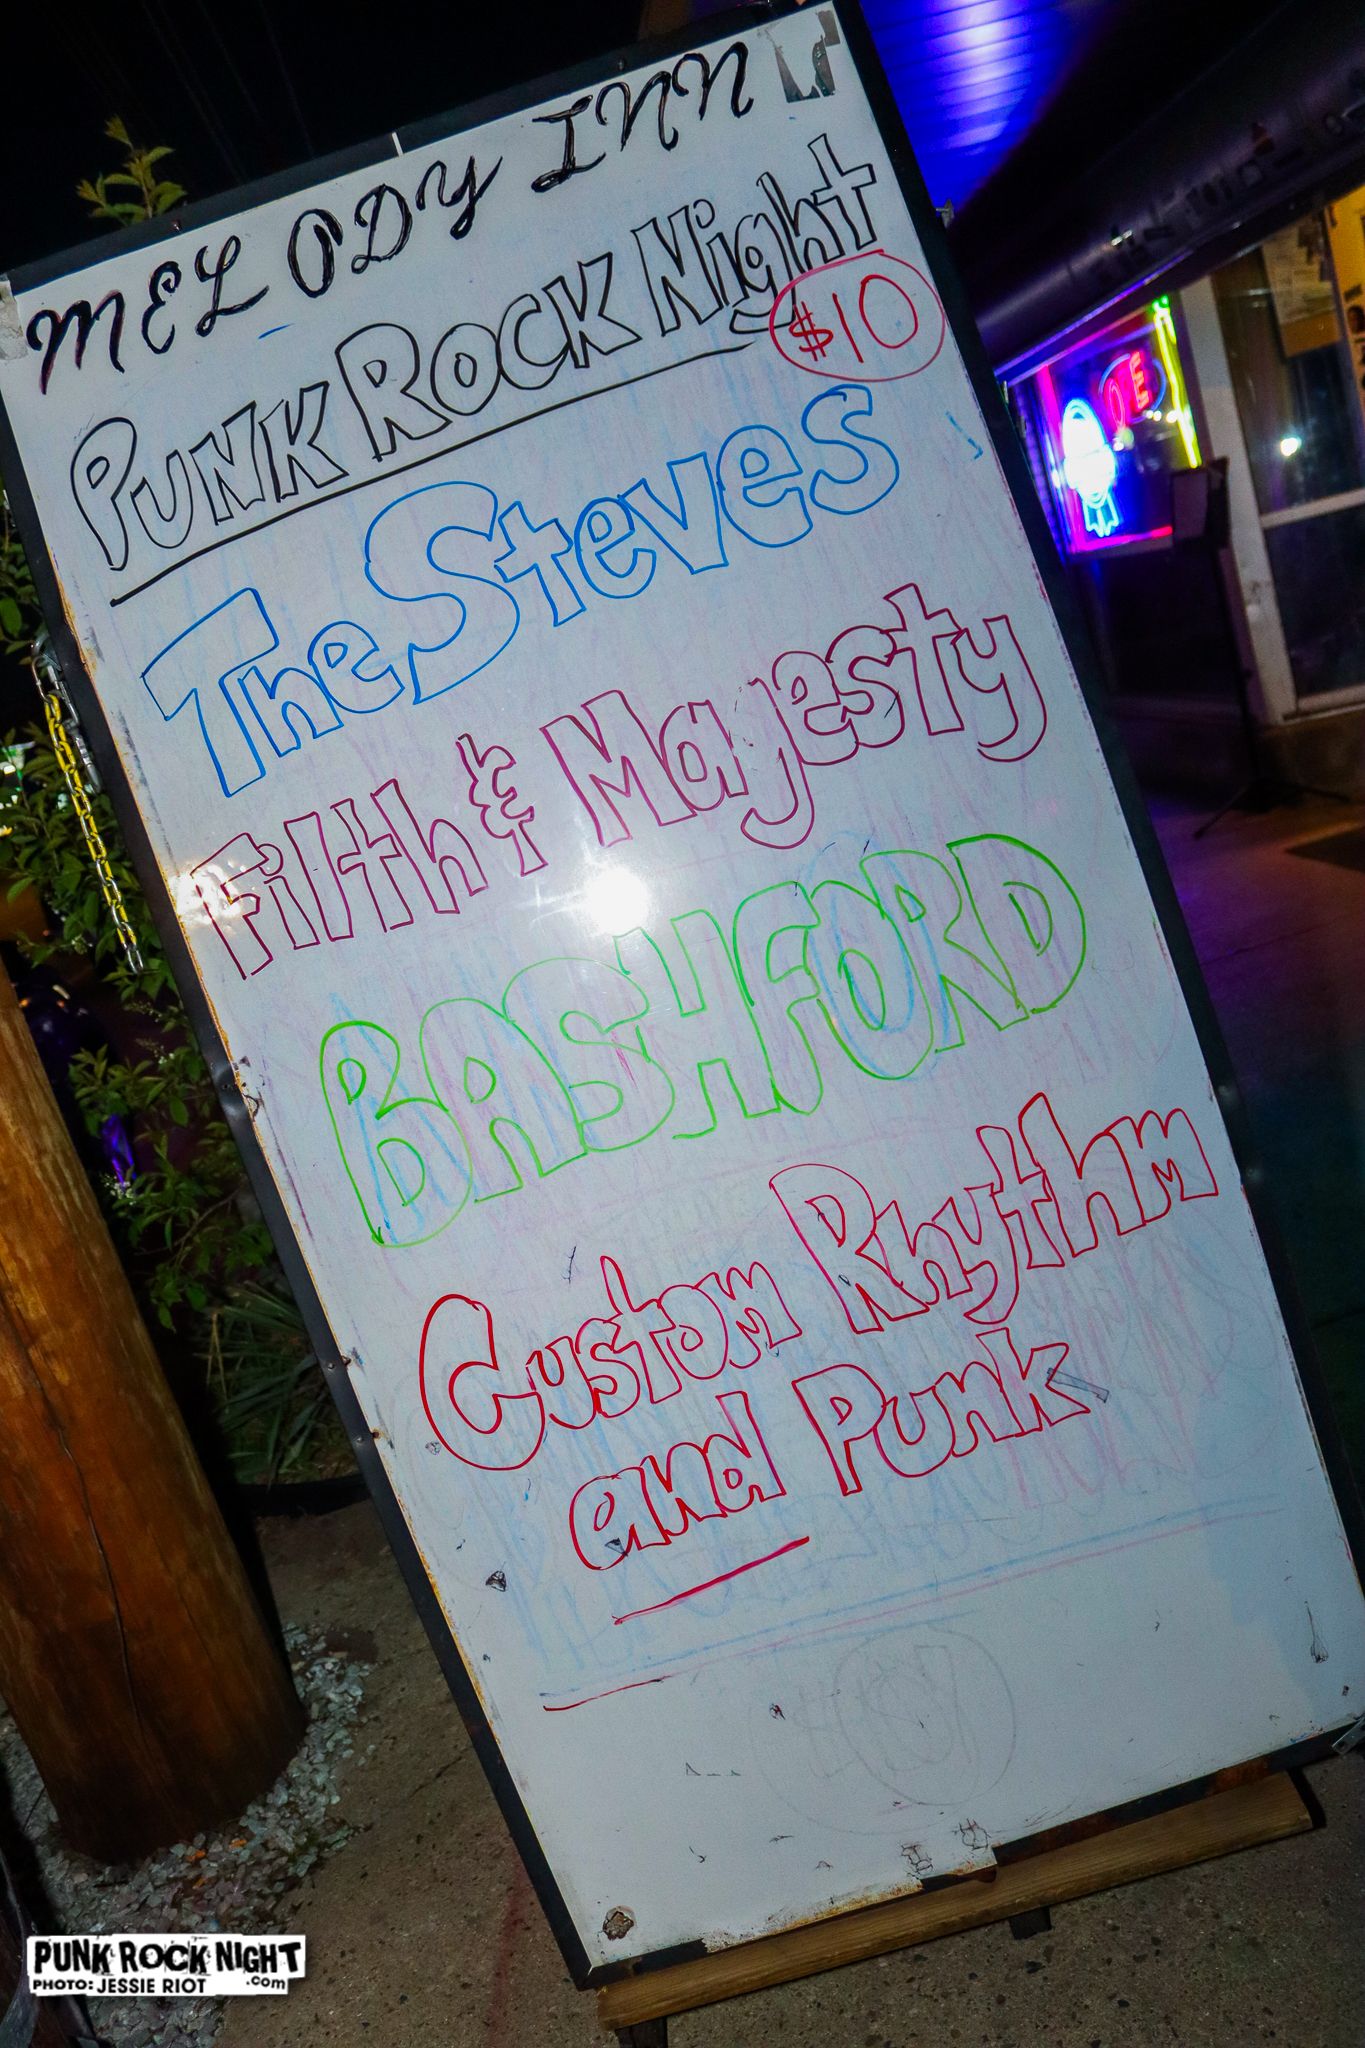 MELODY INN
PUNK ROCK Night
$10
The Steves
Filth & Majesty
BASHFORD
Custom Rhythm
and Punk
PUNK ROCK NIGHT
.com
PHOTO: JESSIE RIOT